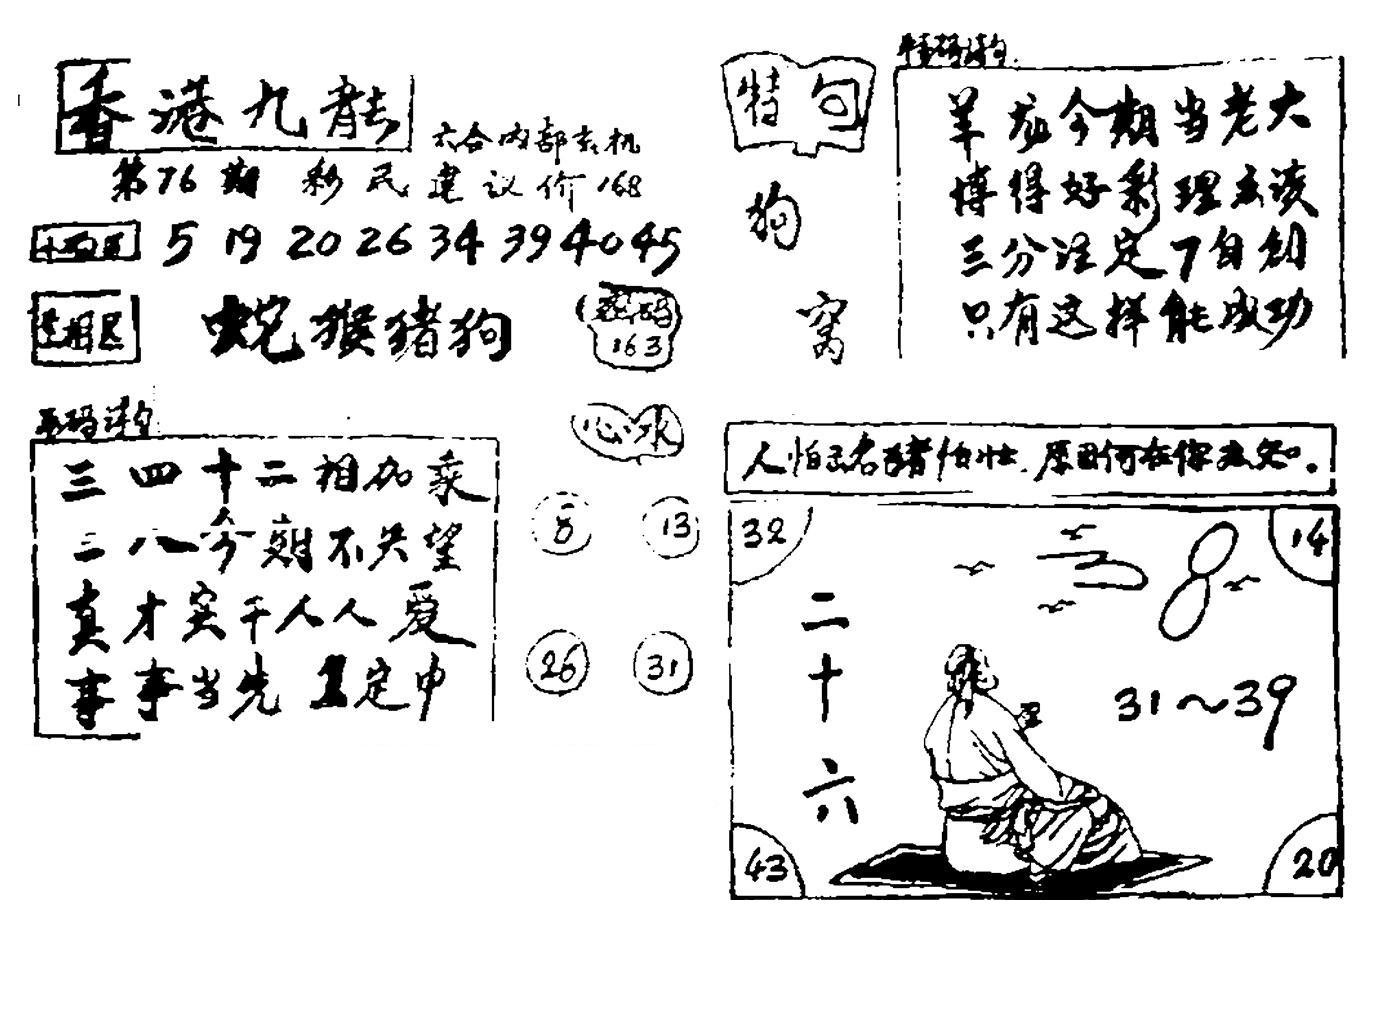 香港九龍
六合内部玄机
第76期 彩民建议价168
5 19 20 26 34 39 40 45
生相区
蛇猴猪狗
密码
163
三四十二相加乘
二八今期不失望
真才实干人人爱
事事当先定中
心水
8
13
26
31
特句
狗
窝
特码诗句
羊龙今期当老大
博得好彩理应该
三分注定7自创
只有这样能成功
人怕出名猪怕壮.原因何在你应知.
32
14
8
二十六
31～39
43
20